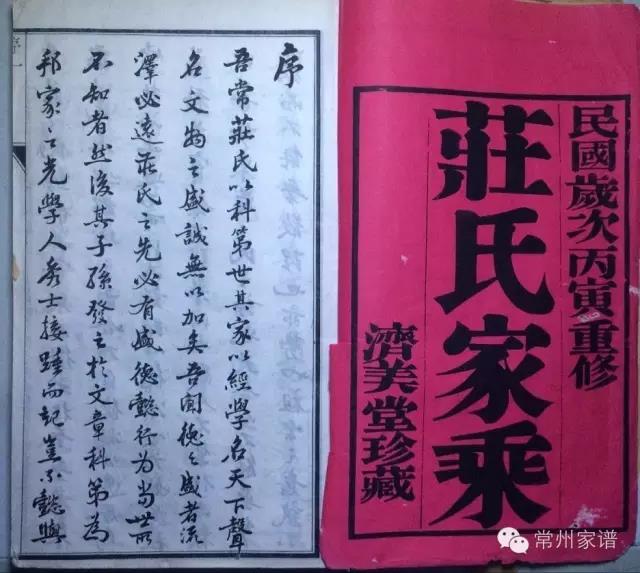 民國歲次丙寅重修
莊氏家乘
濟美堂珍藏
序
吾常莊氏以科第世其家以經學名天下聲
名文物之盛誠無以加矣吾聞德之盛者流
澤必遠莊氏之先必有盛德懿行為當世所
不知者然後其子孫發之於文章科第為
邦家之光學人秀士接踵而起豈不懿與
常州家谱